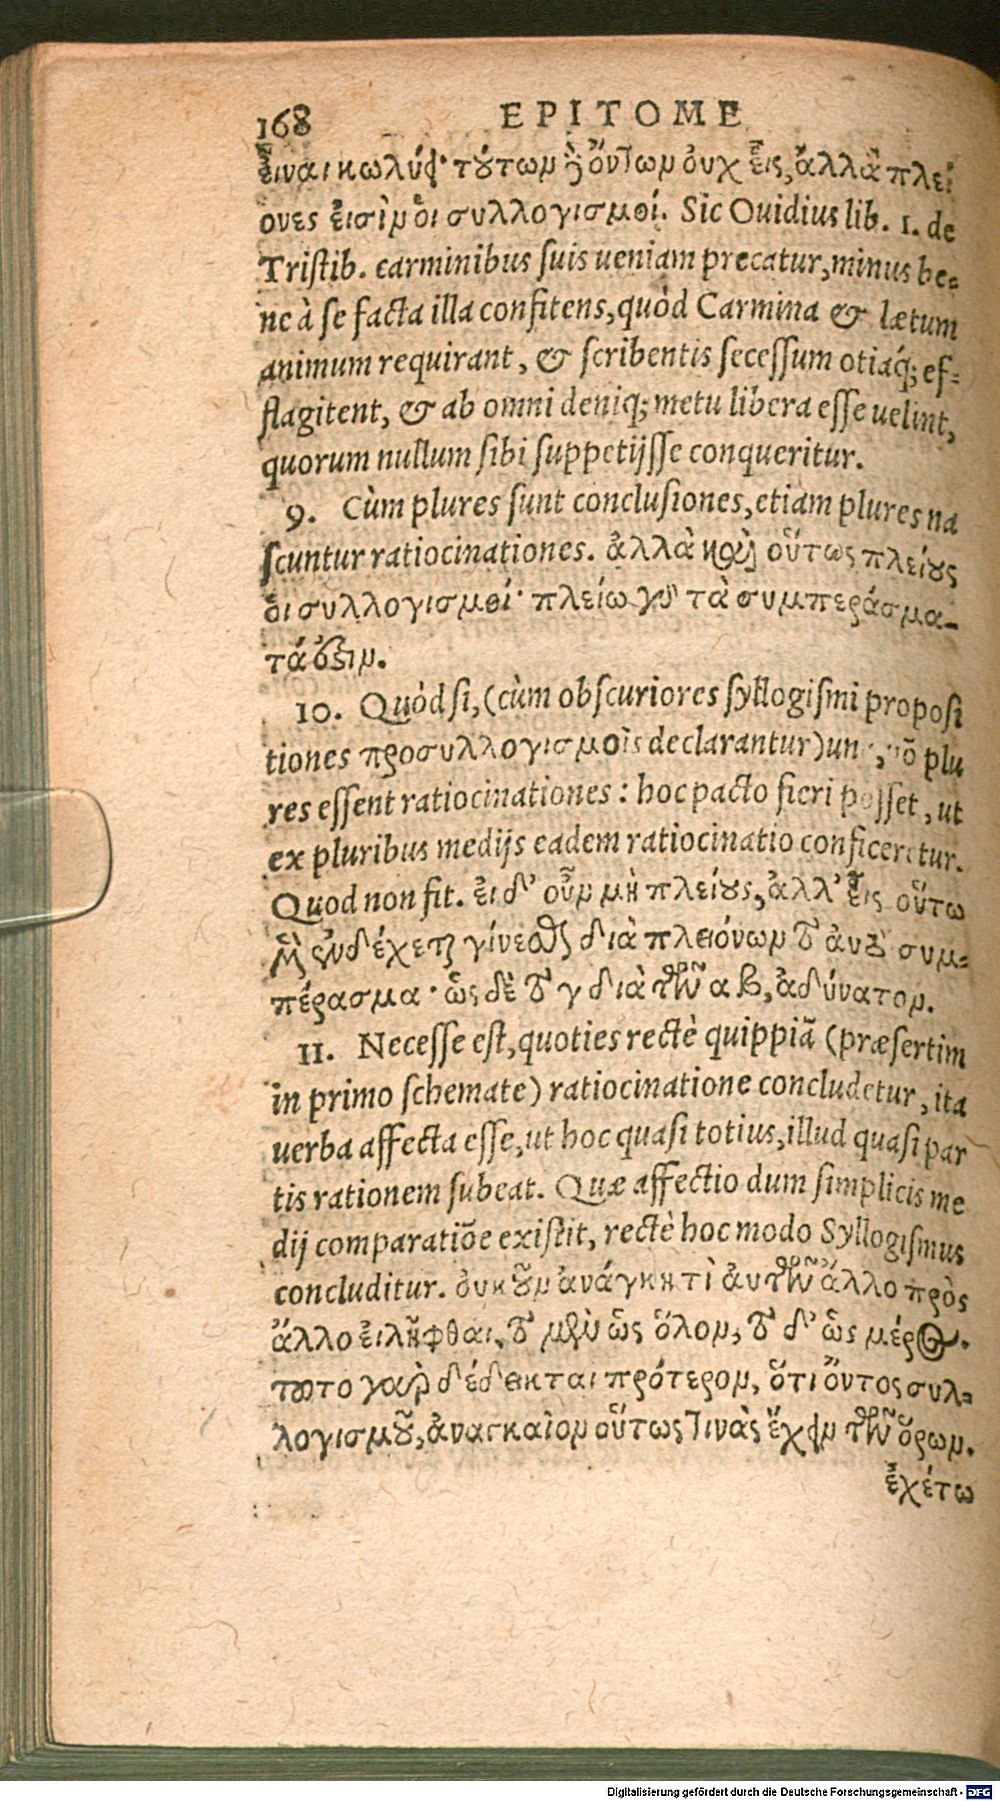 168 EPITOME
εἶναι κωλύει· τούτων δὲ ὄντων οὐχ εἷς, ἀλλὰ πλεί
ονες εἰσὶν οἱ συλλογισμοί. Sic Ouidius lib. 1. de
Tristib. carminibus suis ueniam precatur, minus be-
ne à se facta illa confitens, quòd Carmina & lætum
animum requirant, & scribentis secessum otiaq́; ef-
flagitent, & ab omni deniq; metu libera esse uelint,
quorum nullum sibi suppetijsse conqueritur.
9. Cùm plures sunt conclusiones, etiam plures na
scuntur ratiocinationes. ἀλλὰ καὶ οὕτως πλείους
οἱ συλλογισμοί· πλείω γὰρ τὰ συμπεράσμα-
τά ἐστιν.
10. Quòd si, (cùm obscuriores syllogismi proposi
tiones προσυλλογισμοῖς declarantur) un nō plu
res essent ratiocinationes: hoc pacto fieri posset, ut
ex pluribus medijs eadem ratiocinatio conficeretur.
Quod non fit. εἰ δ' οὖν μὴ πλείους, ἀλλ' εἷς οὕτω
μὲν ἐνδέχεται γίνεσθαι διὰ πλειόνων τὸ αὐτὸ συμ-
πέρασμα· ὡς δὲ τὸ γ διὰ τῶν α β, ἀδύνατον.
11. Necesse est, quoties rectè quippiã (præsertim
in primo schemate) ratiocinatione concludetur, ita
uerba affecta esse, ut hoc quasi totius, illud quasi par
tis rationem subeat. Quæ affectio dum simplicis me
dij comparatiõe existit, rectè hoc modo Syllogismus
concluditur. οὐκοῦν ἀνάγκη τὶ αὐτῶν ἄλλο πρὸς
ἄλλο εἰλῆφθαι, τὸ μὲν ὡς ὅλον, τὸ δ' ὡς μέρος.
τοῦτο γὰρ δέδεικται πρότερον, ὅτι ὄντος συλ-
λογισμοῦ, ἀναγκαῖον οὕτως τινὰς ἔχειν τῶν ὅρων.
ἐχέτω
Digitalisierung gefördert durch die Deutsche Forschungsgemeinschaft - DFG